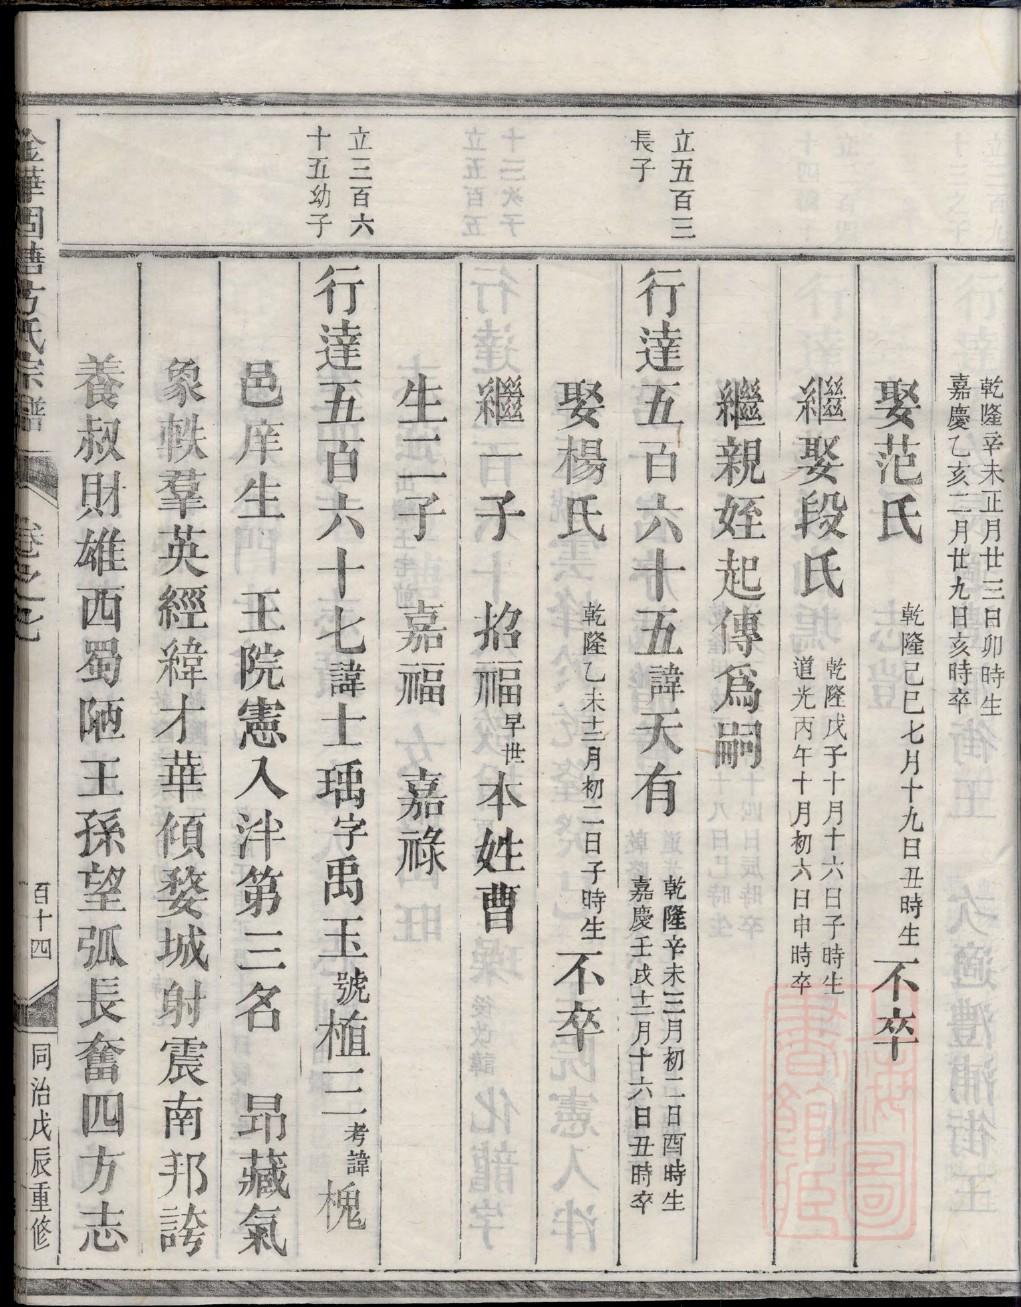 乾隆辛未正月廿三日卯時生
嘉慶乙亥二月廿九日亥時卒
娶范氏 乾隆己巳七月十九日丑時生 不卒
繼娶段氏 乾隆戊子十月十六日子時生
道光丙午十月初六日申時卒
繼親姪起傳爲嗣
立五百三
長子
行達五百六十五諱天有 乾隆辛未三月初二日酉時生
嘉慶壬戌十二月十六日丑時卒
娶楊氏 乾隆乙未十二月初二日子時生 不卒
繼一子 招福早世本姓曹
生二子 嘉福 嘉祿
立三百六
十五幼子
行達五百六十七諱士瑀字禹玉號植三考諱槐
邑庠生 王院憲入泮第三名 昂藏氣
象軼羣英經緯才華傾婺城射震南邦誇
養叔財雄西蜀陋王孫望弧長奮四方志
金華固塘方氏宗譜 卷之七 百十四 同治戊辰重修